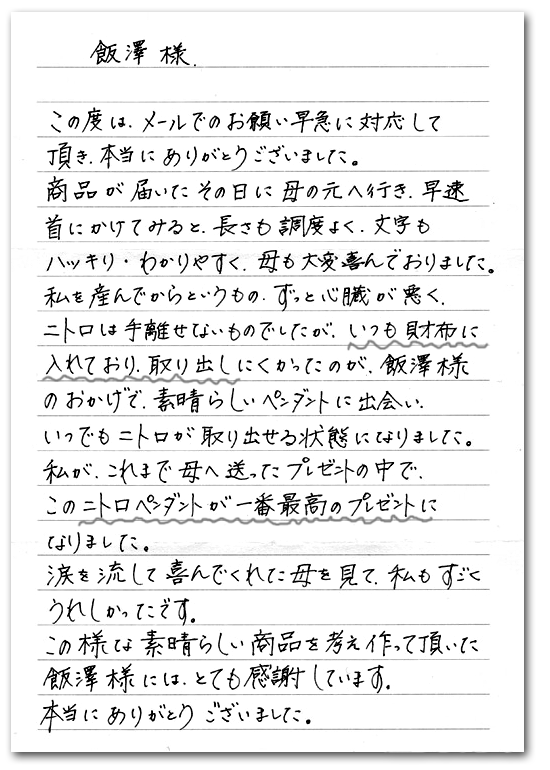 飯澤 様.
この度は、メールでのお願い早急に対応して
頂き、本当にありがとうございました。
商品が届いたその日に母の元へ行き、早速
首にかけてみると、長さも調度よく、文字も
ハッキリ・わかりやすく、母も大変喜んでおりました。
私を産んでからというもの、ずっと心臓が悪く、
ニトロは手離せないものでしたが、いつも財布に
入れており、取り出しにくかったのが、飯澤様
のおかげで、素晴らしいペンダントに出会い、
いつでもニトロが取り出せる状態になりました。
私が、これまで母へ送ったプレゼントの中で、
このニトロペンダントが一番最高のプレゼントに
なりました。
涙を流して喜んでくれた母を見て、私もすごく
うれしかったです。
この様な素晴らしい商品を考え作って頂いた
飯澤様には、とても感謝しています。
本当にありがとうございました。